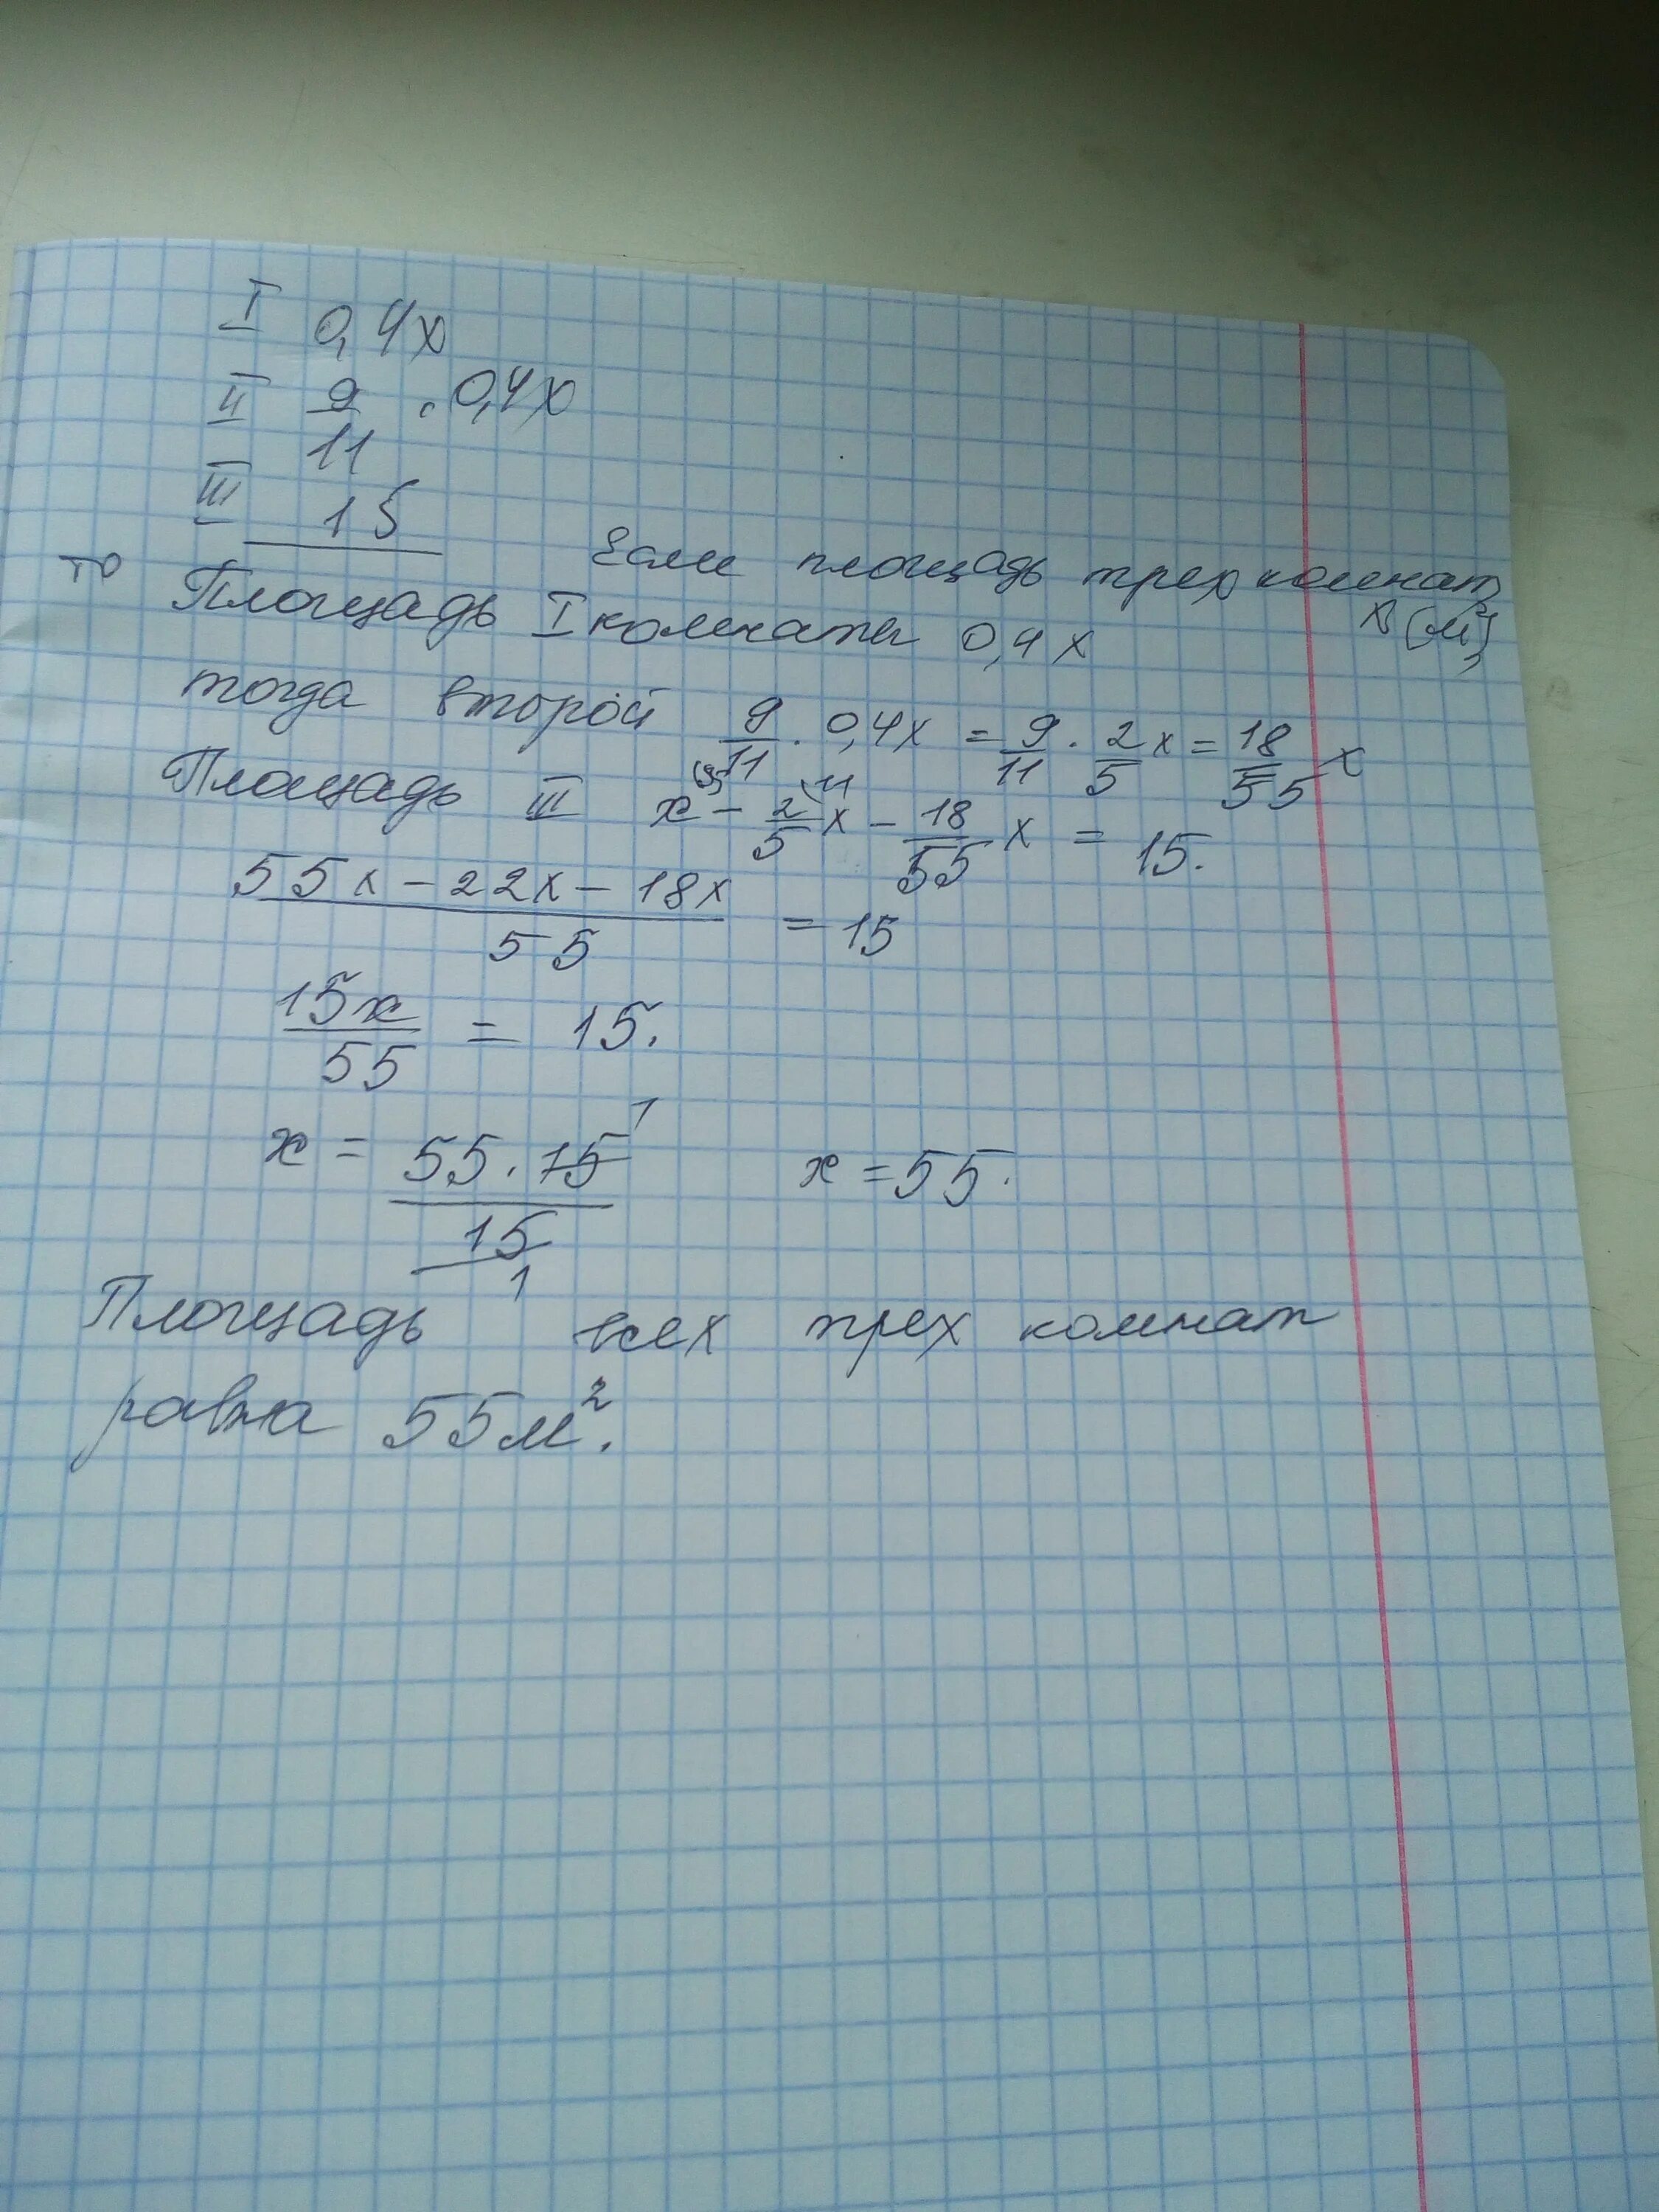 I 0,4x
II 9/11 · 0,4x
III 15
Если площадь трех комнат x (м²),
то Площадь I комнаты 0,4x
тогда второй 9/11 · 0,4x = 9/11 · 2/5 x = 18/55 x
Площадь III x - 2/5 x - 18/55 x = 15.
(55x - 22x - 18x)/55 = 15
15x/55 = 15.
x = (55 · 15)/15 x = 55.
Площадь всех трех комнат
равна 55м².